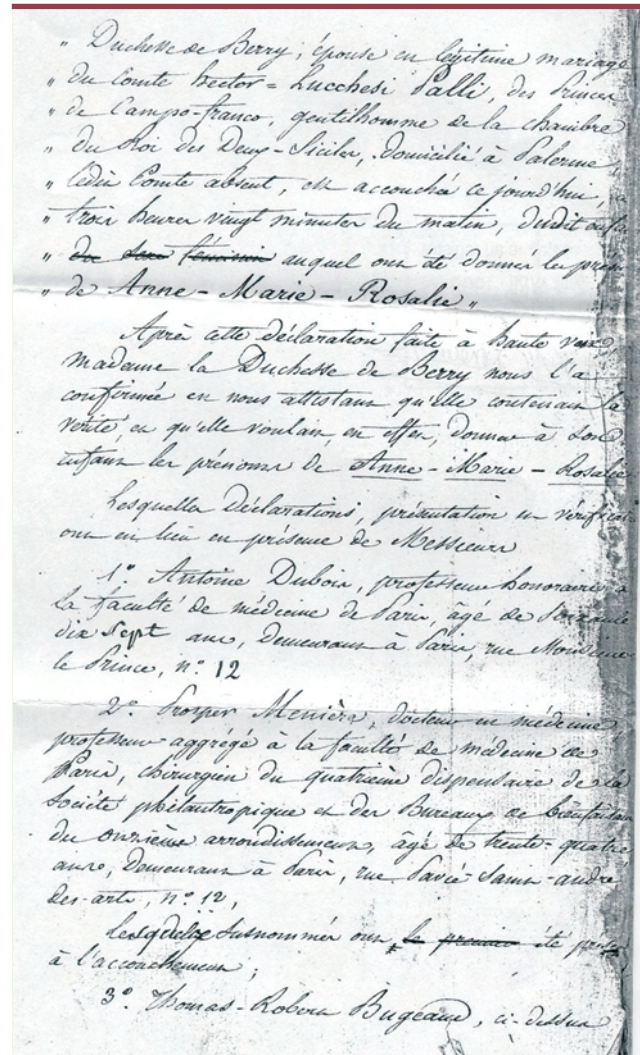 „ Duchesse de Berry, épouse en légitime mariage
„ du Comte hector = Lucchesi Palli, des Princes
„ de Campo-franco, gentilhomme de la chambre
„ du Roi des Deux-Siciles, domicilié à Palerme,
„ ledit Comte absent, est accouchée ce jourd'hui, à
„ trois heures vingt minutes du matin, dudit enfan
„ du sexe féminin auquel ont été donnés les prén
„ de Anne-Marie-Rosalie „
Après cette déclaration faite à haute voix
madame la Duchesse de Berry nous l'a
confirmée en nous attestant qu'elle contenait la
vérité, et qu'elle voulait, en effet, donner à son
enfant les prénoms de Anne-Marie-Rosalie
Lesquelles déclarations, présentation et vérificat
ont eu lieu en présence de Messieurs
1° Antoine Dubois, professeur honoraire à
la faculté de médecine de Paris, âgé de soixante
dix sept ans, demeurant à Paris, rue Monsieur
le Prince, n° 12
2° Prosper Menière, docteur en médecine,
professeur aggrégé à la faculté de médecine de
Paris, chirurgien du quatrième dispensaire de la
Société philantropique et des Bureaux de bienfaisan
du onzième arrondissement, âgé de trente-quatre
ans, demeurant à Paris, rue Pavée-Saint-andré
des-arts, n° 12,
susnommés ont, le premier été
à l'accouchement;
3° Thomas-Robert Bugeaud, ci-dessus